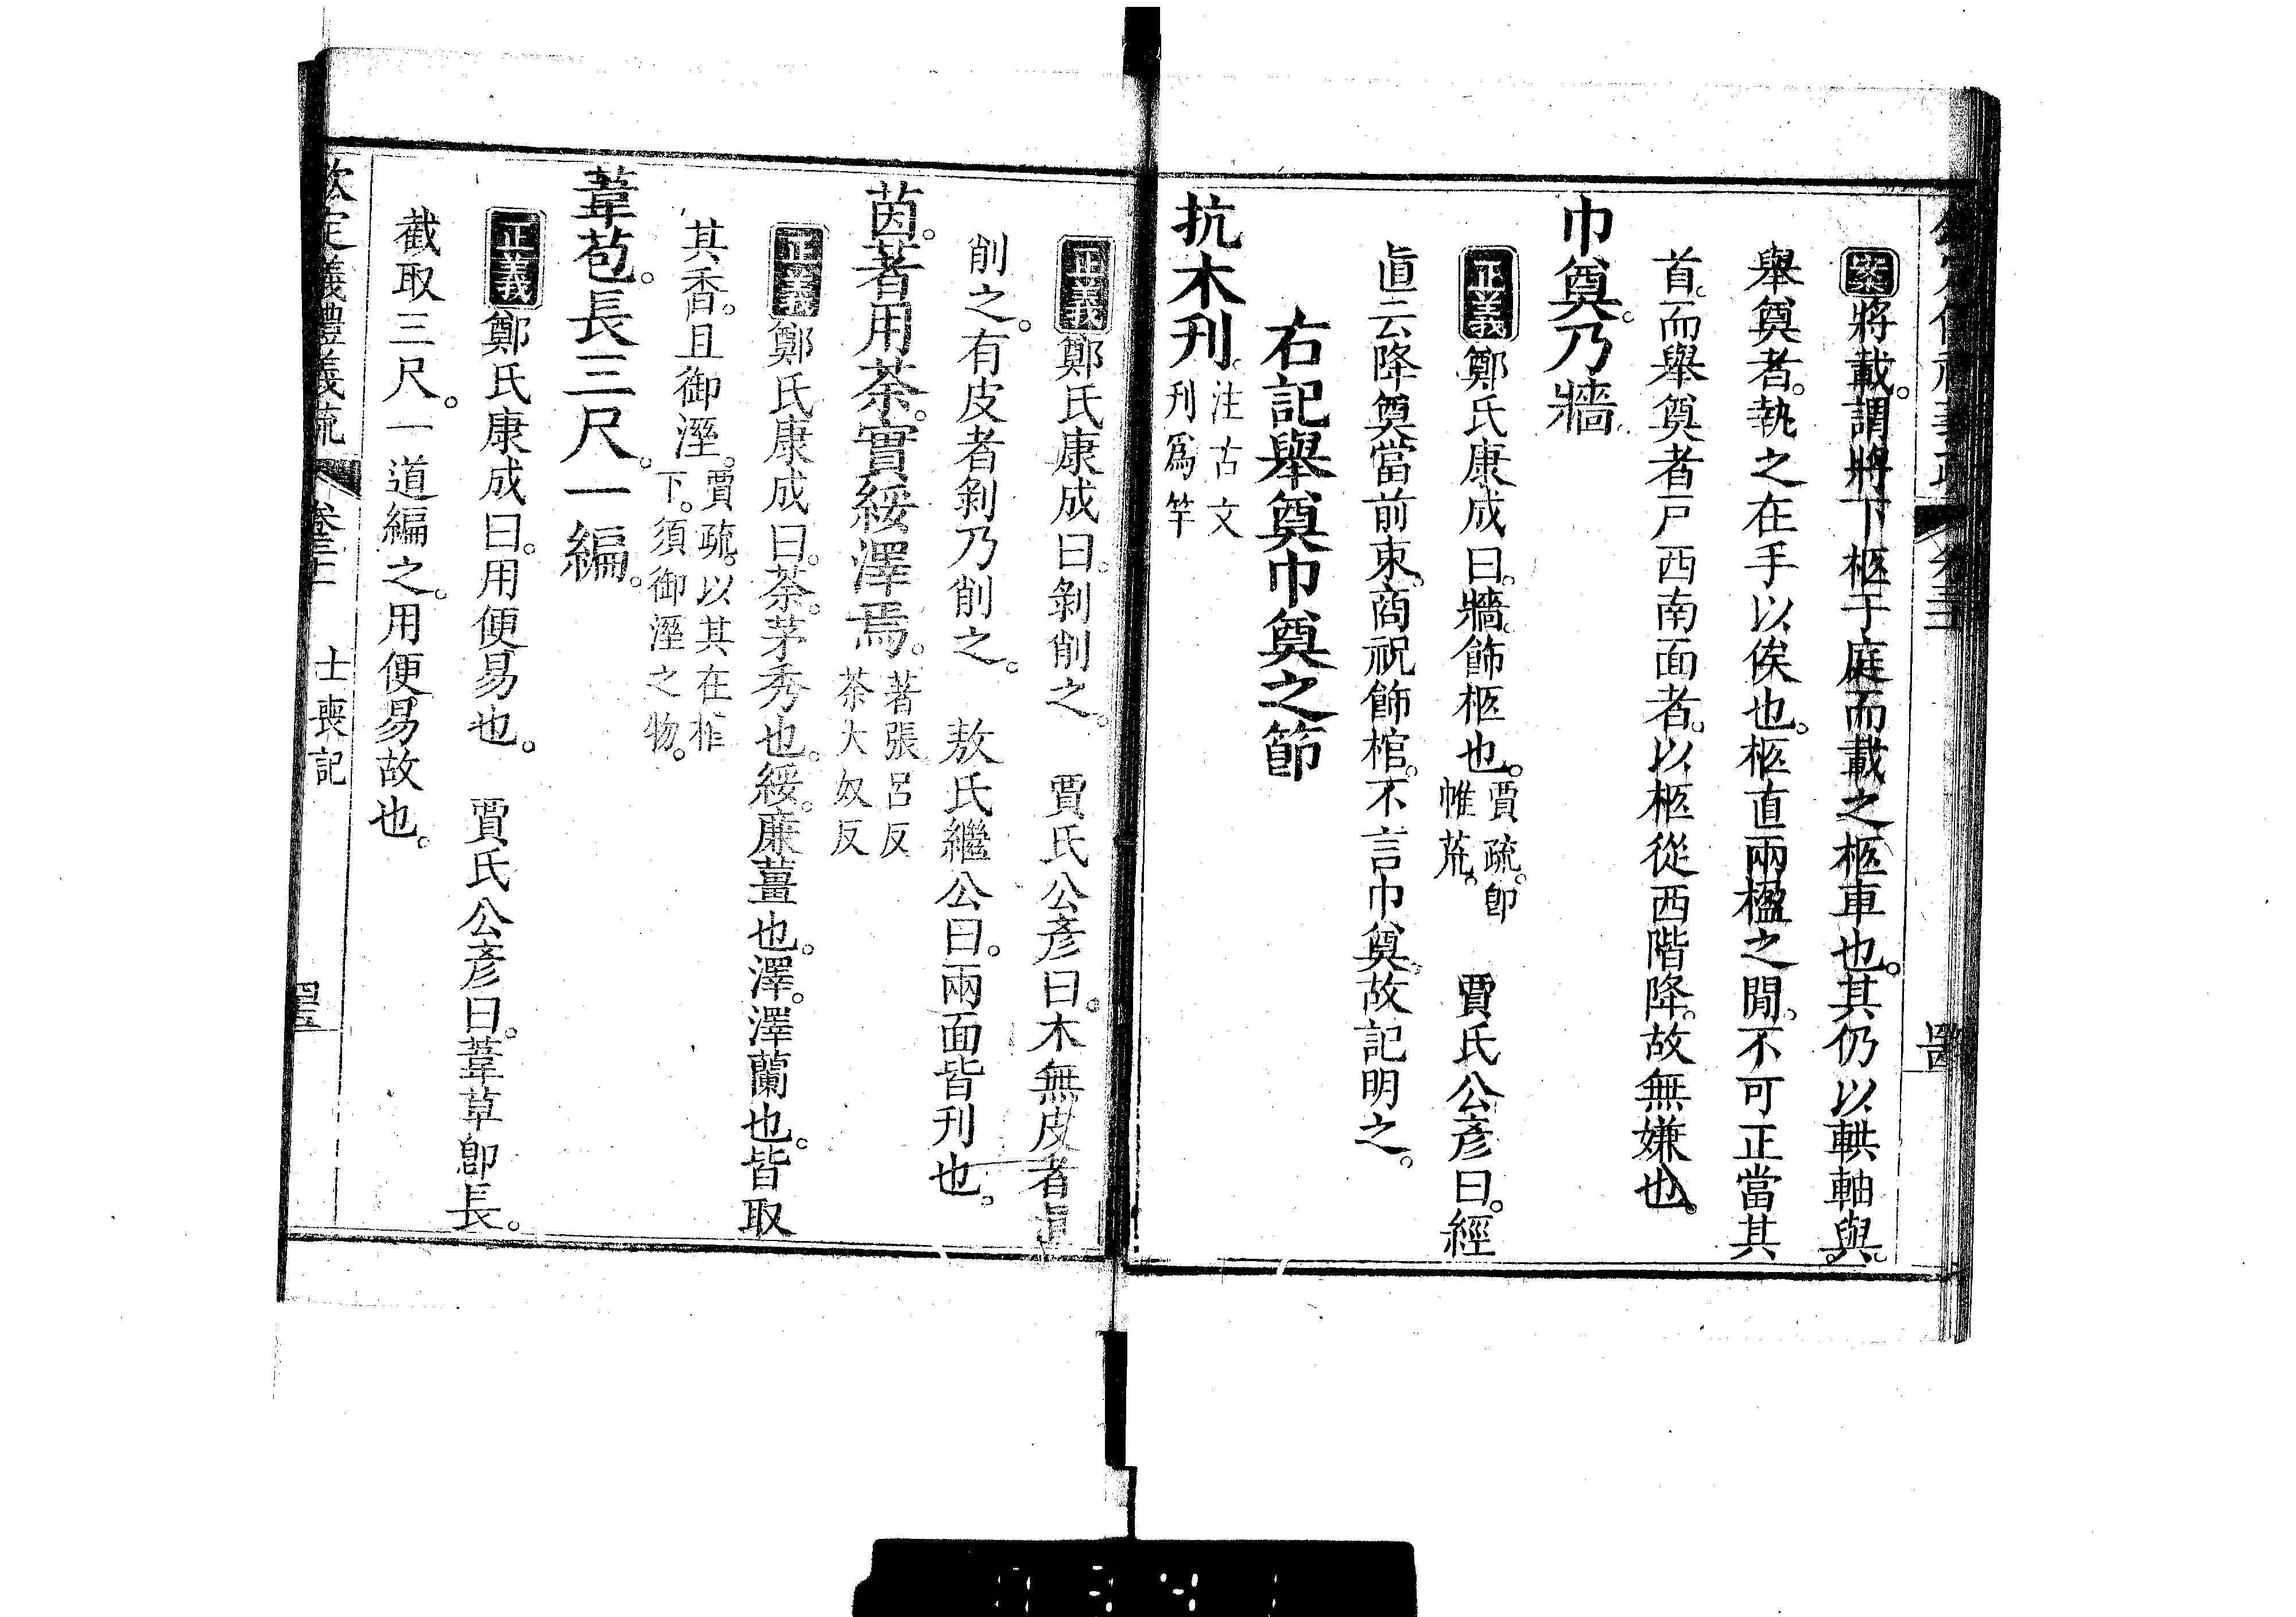 案將載。謂將下柩于庭而載之柩車也。其仍以輁軸與。
舉奠者。執之在手以俟也。柩直兩楹之閒。不可正當其
首。而舉奠者戸西南面者。以柩從西階降。故無嫌也。
巾奠。乃牆。
正義鄭氏康成曰。牆。飾柩也。賈疏。卽帷荒。 賈氏公彥曰。經
直云降奠當前束。商祝飾棺。不言巾奠。故記明之。
右記舉奠巾奠之節
抗木刋。注古文刋爲竿
正義鄭氏康成曰。剝削之。 賈氏公彥曰。木無皮者直
削之。有皮者剝乃削之。 敖氏繼公曰。兩面皆刋也。
茵。著用荼。實綏澤焉。著張呂反荼大奴反
正義鄭氏康成曰。荼。茅秀也。綏。廉薑也。澤。澤蘭也。皆取
其香。且御溼。賈疏。以其在柩下。須御溼之物。
葦苞。長三尺。一編。
正義鄭氏康成曰。用便易也。 賈氏公彥曰。葦草卽長。
截取三尺。一道編之。用便易故也。
欽定義禮義疏 卷三十一 士喪記